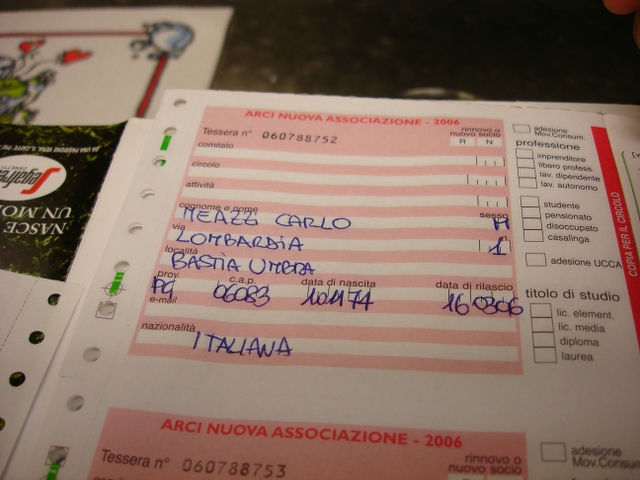 ARCI NUOVA ASSOCIAZIONE - 2006
Tessera n° 060788752
rinnovo o nuovo socio
R N
comitato
circolo
attività
cognome e nome
MEAZZI CARLO
sesso
M
via
LOMBARDIA
1
località
BASTIA UMBRA
prov.
PG
c.a.p.
06083
data di nascita
data di rilascio
16 0306
e-mail
nazionalità
ITALIANA
adesione Mov.Consum.
professione
imprenditore
libero profess.
lav. dipendente
lav. autonomo
studente
pensionato
disoccupato
casalinga
adesione UCCA
titolo di studio
lic. element.
lic. media
diploma
laurea
COPIA PER IL CIRCOLO
ARCI NUOVA ASSOCIAZIONE - 2006
Tessera n° 060788753
rinnovo o nuovo socio
adesione Mov.Consum.
Segafredo
ZANETTI
NASCE
UN MO